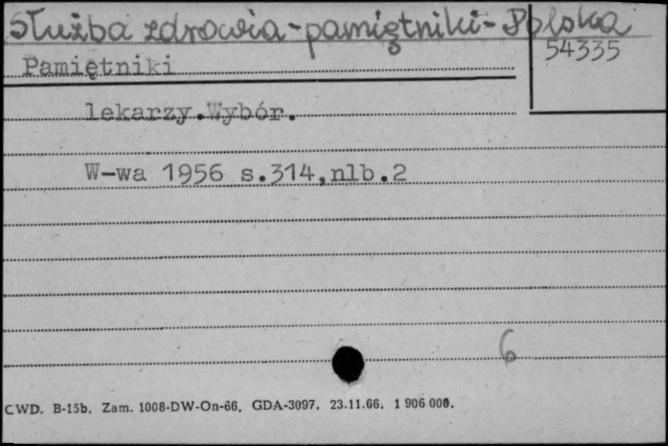 Służba zdrowia-pamiętniki-Polska
54335
Pamiętniki
lekarzy.Wybór.
W-wa 1956 s.314,nlb.2
6
CWD. B-15b. Zam. 1008-DW-On-66. GDA-3097. 23.11.66. 1 906 000.